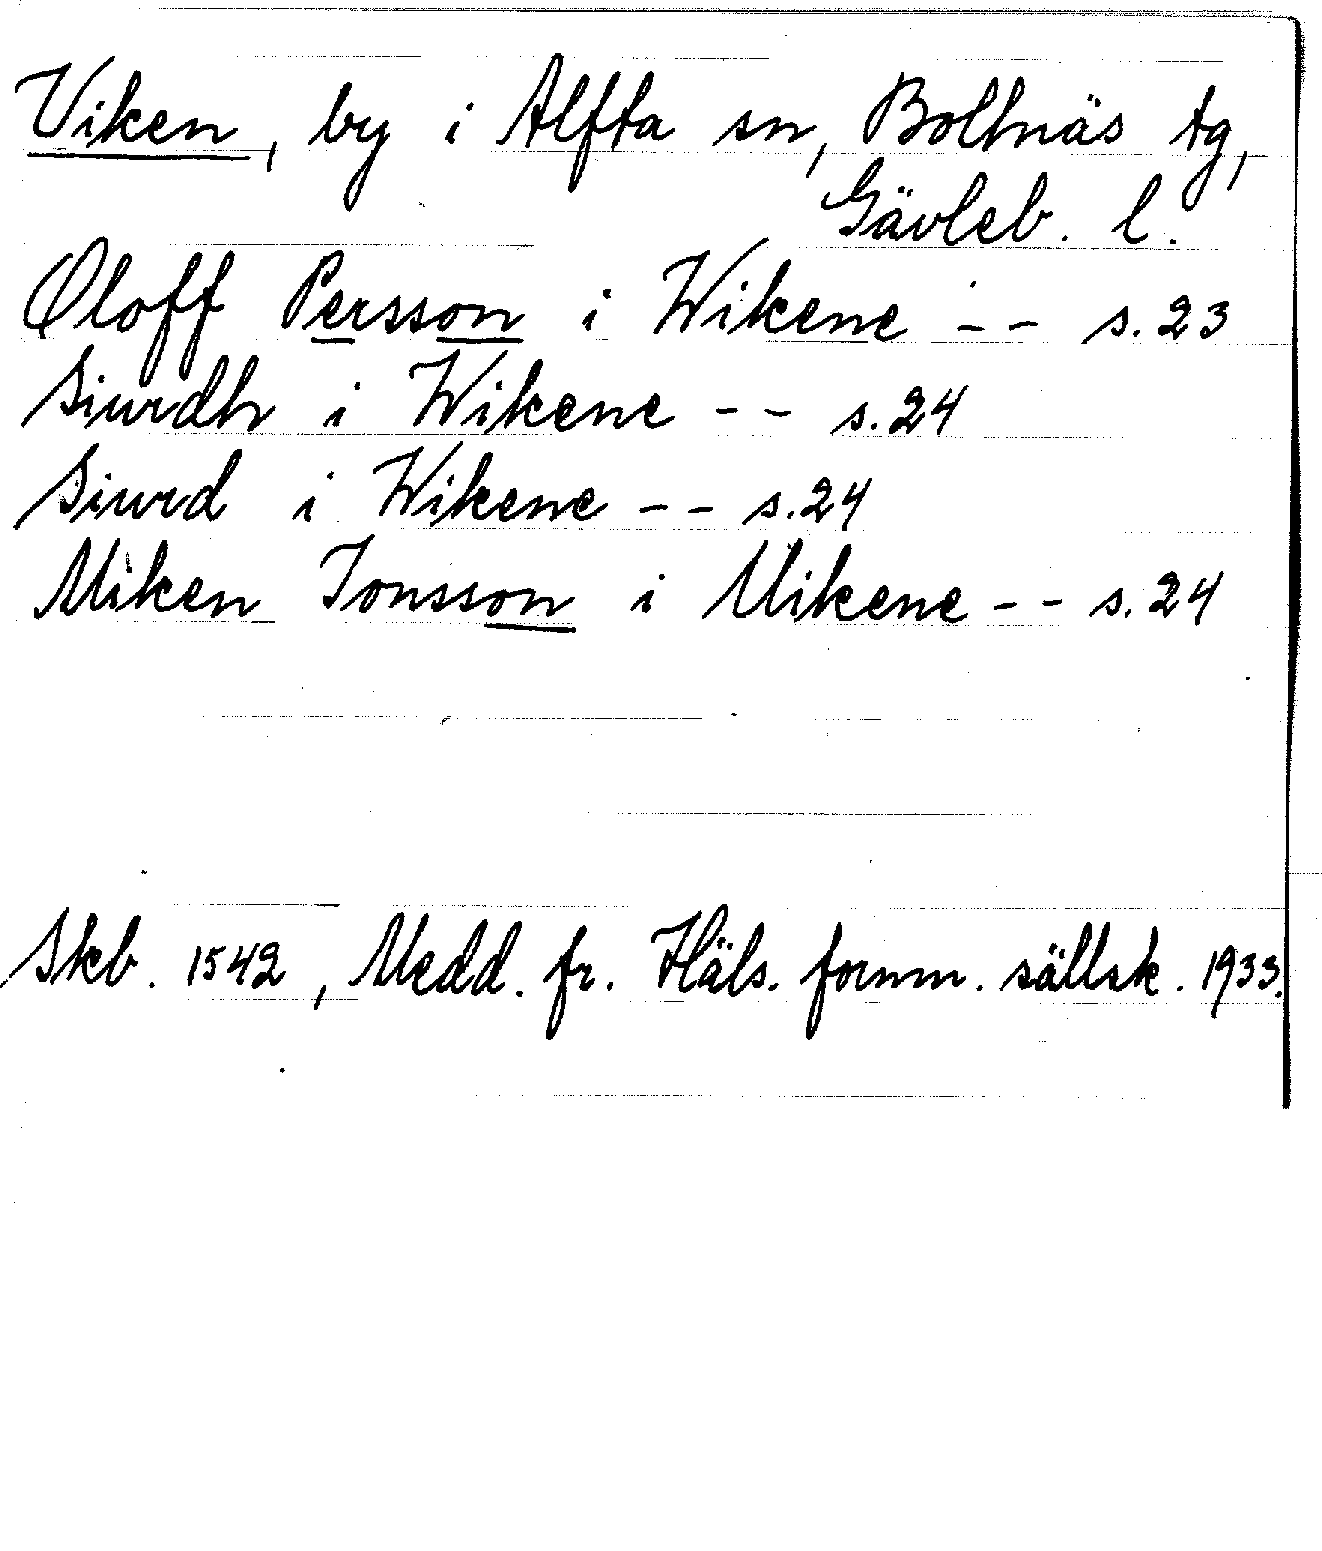 Viken, by i Alfta sn, Bollnäs tg,
Gävleb. l.
Oloff Persson i Wikene -- s. 23
Siurdh i Wikene -- s. 24
Siurd i Wikene -- s. 24
Miken Jonsson i Uikene -- s. 24
Skb. 1542, Medd. fr. Häls. fornm. sällsk. 1933.